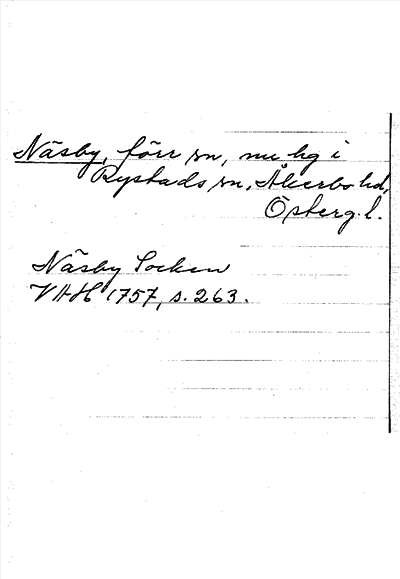 Näsby, förr sn, nu hg i
Rystads sn, Åkerbo hd,
Österg. l.
Näsby Socken
VHH 1757, s. 263.